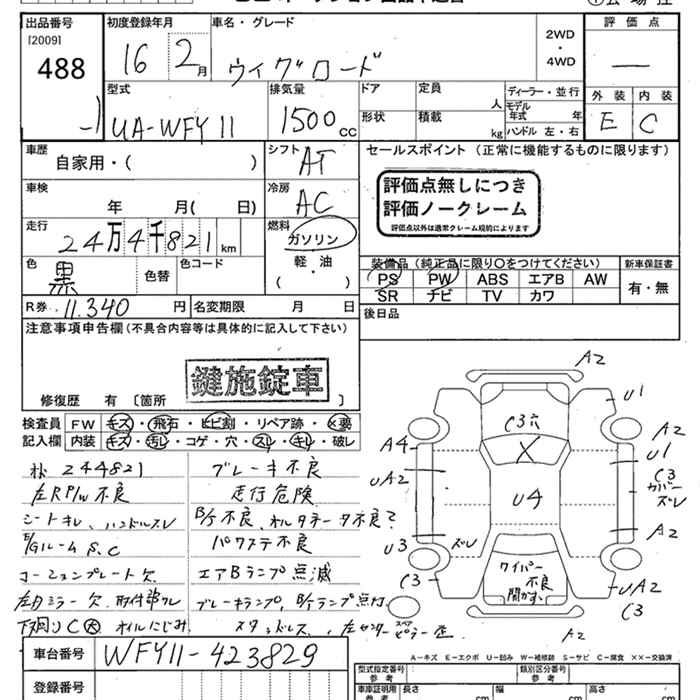 出品番号
[2009]
488
初度登録年月
16 2月
車名・グレード
ウィングロード
2WD
・
4WD
評価点
—
外装 内装
E C
型式
UA-WFY11
排気量
1500cc
ドア
定員
人
形状
積載
kg
ディーラー・並行
モデル年式 年
ハンドル 左・右
車歴
自家用・( )
シフト
AT
車検
年 月( 日)
冷房
AC
走行
24万4千821km
燃料
ガソリン
軽・油
( )
色
黒
色替
色コード
R券 11.340 円
名変期限 月 日
セールスポイント (正常に機能するものに限ります)
評価点無しにつき
評価ノークレーム
評価点以外は通常クレーム規約によります
装備品(純正品に限り○をつけてください)
新車保証書
PS PW ABS エアB AW
SR ナビ TV カワ
有・無
後日品
注意事項申告欄(不具合内容等は具体的に記入して下さい)
鍵施錠車
修復歴 有 〔箇所 〕
検査員 FW キズ・飛石・ヒビ割・リペア跡・×要
記入欄 内装 キズ・汚レ・コゲ・穴・スレ・キレ・破レ
244821
左RP/W不良
シートキレ、ハンドルスレ
E/Gルーム S.C
コーションプレート欠
左ドミラー欠、取付部ワレ
下廻りC大 オイルにじみ
ブレーキ不良
走行危険
B/T不良、オルタネータ不良?
パワステ不良
エアBランプ点滅
ブレーキランプ,B/Tランプ点灯
スタッドレス、左センターピラー歪
車台番号 WFY11-423829
登録番号
A2
U1
C3穴
A2
A4
U1
UA2
C3
カバー
ズレ
U4
A2
U3
ズレ
C3
ワイパー
不良
開かず
UA2
C3
スペア
A2
A-キズ E-エクボ U-凹み W-補修跡 S-サビ C-腐食 ××-交換済
型式指定番号
参考
類別区分番号
参考
車庫証明用
参考
長さ cm
幅 cm
高さ cm